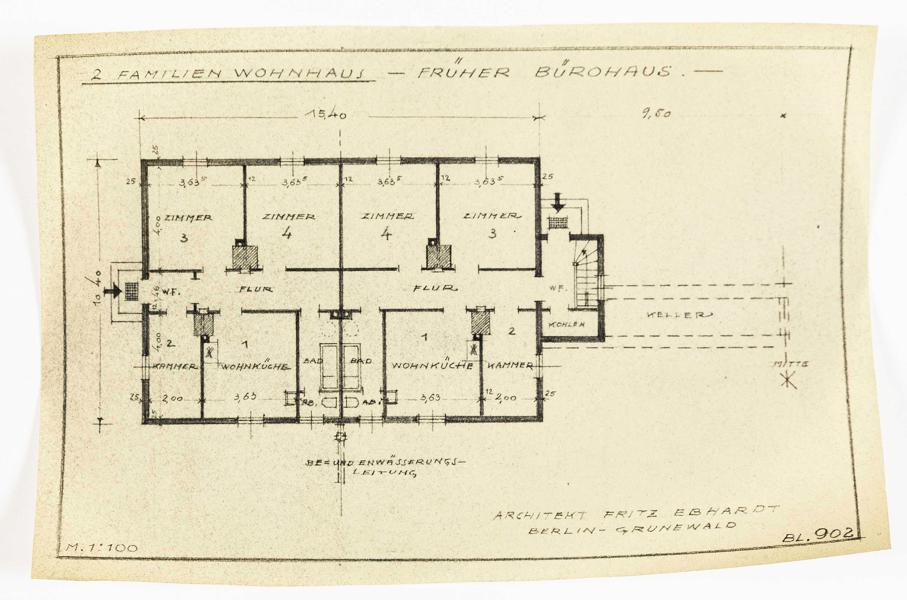 2 FAMILIEN WOHNHAUS — FRÜHER BÜROHAUS. —
15,40 9,80
25
25 3,63⁵ 12 3,63⁵ 12 3,63⁵ 12 3,63⁵ 25
ZIMMER ZIMMER ZIMMER ZIMMER
3 4 4 3
4,00
10,40
W.F. FLUR FLUR W.F.
KOHLEN KELLER
2 1 1 2
4,00
KAMMER WOHNKÜCHE BAD BAD WOHNKÜCHE KAMMER
MITTE
25 2,00 3,63 AB. AB. 3,63 12 2,00 25
25
BE= UND ENWÄSSERUNGS-
LEITUNG
ARCHITEKT FRITZ EBHARDT
BERLIN-GRUNEWALD
M. 1:100 BL. 902